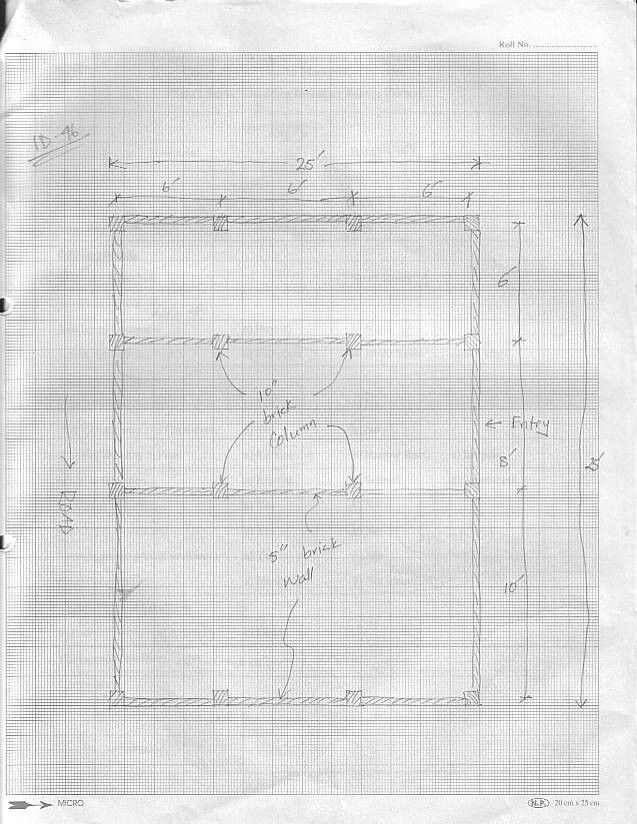 Roll No.
ID-46
25'
6'
6'
6'
6'
10"
brick
Column
← Entry
8'
25'
ROAD
5" brick
wall
10'
MICRO
N.P. 20 cm x 25 cm